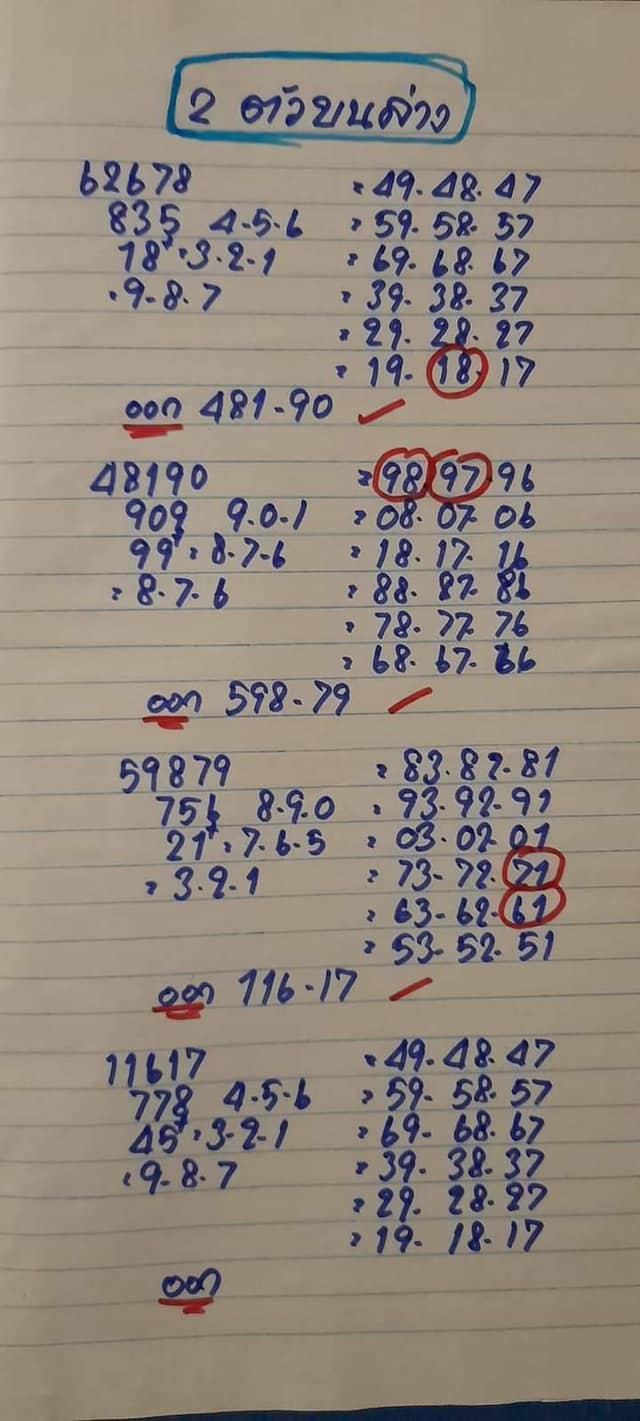 2 ตัวบนล่าง
62678 = 49. 48. 47
835 4-5-6 = 59. 58. 57
18 = 3-2-1 = 69. 68. 67
= 9-8-7 = 39. 38. 37
= 29. 28. 27
= 19. 18. 17
ออก 481-90
48190 = 98. 97. 96
909 9.0.1 = 08. 07. 06
99 = 8-7-6 = 18. 17. 16
= 8-7-6 = 88. 87. 86
= 78. 77. 76
= 68. 67. 66
ออก 598-79
59879 = 83. 82. 81
756 8.9.0 = 93. 92. 91
21 = 7-6-5 = 03. 02. 01
= 3-2-1 = 73-72-71
= 63-62-61
= 53-52. 51
ออก 116-17
11617 = 49. 48. 47
778 4-5-6 = 59- 58-57
45 = 3-2-1 = 69- 68. 67
= 9-8-7 = 39. 38. 37
= 29. 28-27
= 19- 18. 17
ออก